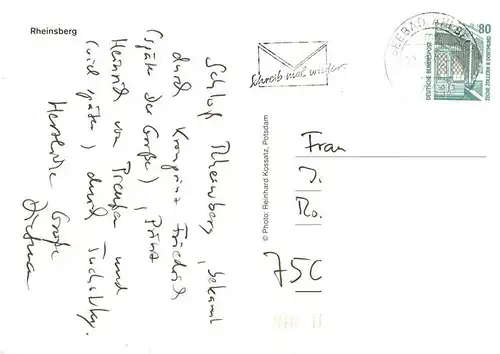 Rheinsberg
Schloß Rheinsberg, bekannt
durch Kronprinz Friedrich
(später der Große), Prinz
Heinrich von Preußen und
(viel später) durch Tucholsky.
Herzliche Grüße
Dietmar
Schreib mal wieder
SEEBAD AHLBECK
80
DEUTSCHE BUNDESPOST
ZECHE ZOLLERN II DORTMUND
© Photo: Reinhard Kossatz, Potsdam
Frau
J.
Ro.
75C